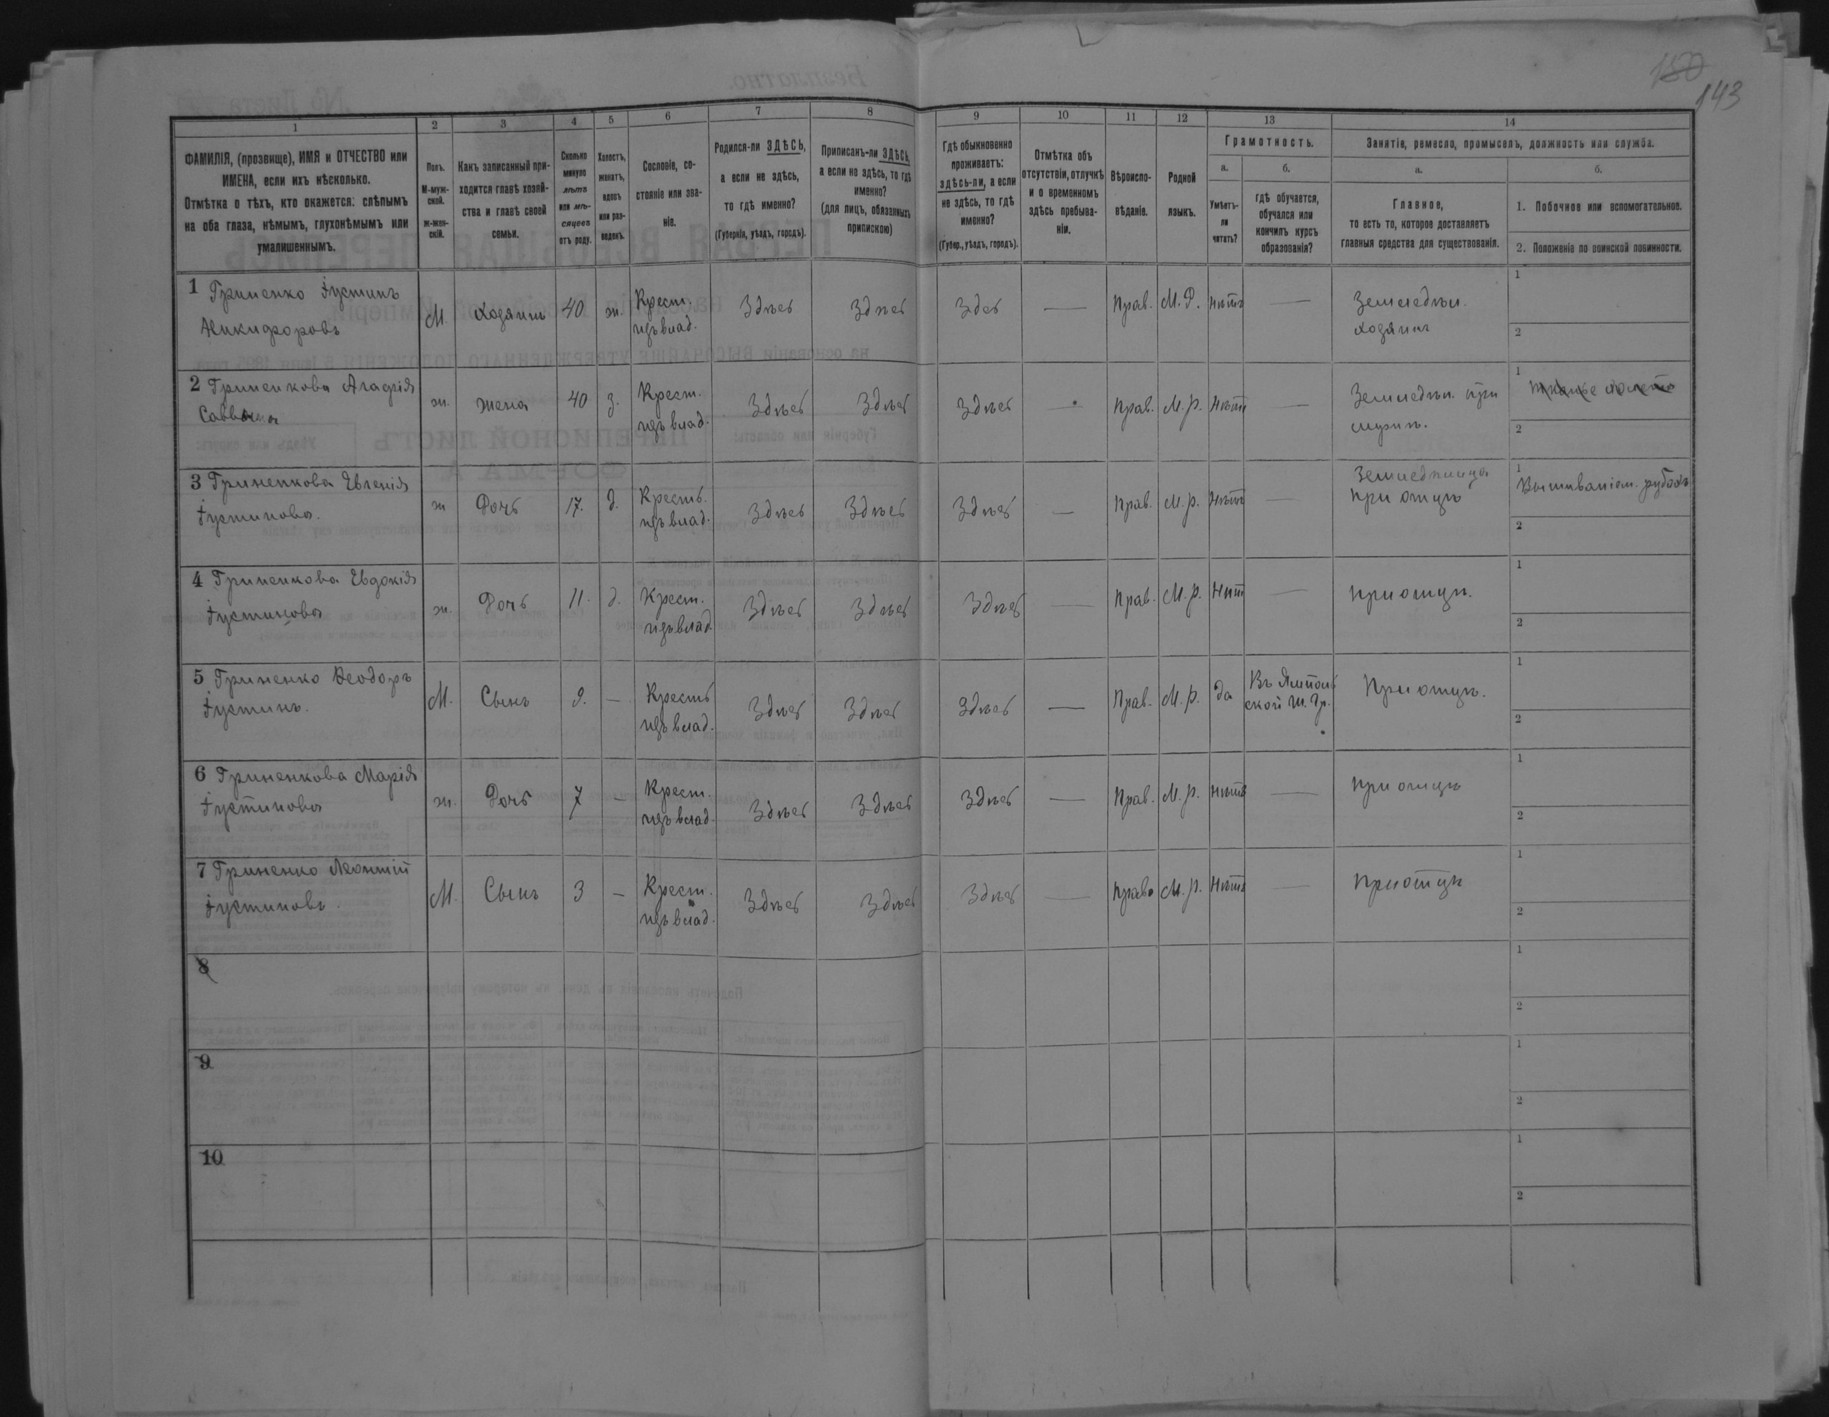 150
143
1 2 3 4 5 6 7 8 9 10 11 12 13 14
ФАМИЛІЯ, (прозвище), ИМЯ и ОТЧЕСТВО или ИМЕНА, если ихъ нѣсколько.
Отмѣтка о тѣхъ, кто окажется: слѣпымъ на оба глаза, нѣмымъ, глухонѣмымъ или умалишеннымъ.
Полъ.
М-мужской.
ж-женскій.
Какъ записанный приходится главѣ хозяйства и главѣ своей семьи.
Сколько минуло лѣта или мѣсяцевъ отъ роду.
Холостъ, женатъ, вдовъ или разведенъ.
Сословіе, состояніе или званіе.
Родился-ли ЗДѢСЬ, а если не здѣсь, то гдѣ именно?
(Губернія, уѣздъ, городъ).
Приписанъ-ли ЗДѢСЬ, а если не здѣсь, то гдѣ именно?
(для лицъ, обязанныхъ припискою)
Гдѣ обыкновенно проживаетъ: здѣсь-ли, а если не здѣсь, то гдѣ именно?
(Губер., уѣздъ, городъ).
Отмѣтка объ отсутствіи, отлучкѣ и о временномъ здѣсь пребываніи.
Вѣроисповѣданіе.
Родной языкъ.
Грамотность.
а.
Умѣетъ-ли читать?
б.
гдѣ обучается, обучался или кончилъ курсъ образованія?
Занятіе, ремесло, промыселъ, должность или служба.
а.
Главное,
то есть то, которое доставляетъ главныя средства для существованія.
б.
1. Побочное или вспомогательное.
2. Положеніе по воинской повинности.
1 Гриненко Іустинъ М. Хозяинъ 40 ж. Крест. Здѣсь Здѣсь Здѣсь — Прав. М.Р. Нѣтъ — Земледѣл. 1
Никифоровъ изъ влад. хозяинъ 2
2 Гриненкова Агафія ж. жена 40 з. Крест. Здѣсь Здѣсь Здѣсь — Прав. М.р. Нѣтъ — Земледѣл. при 1
Саввина изъ влад. мужѣ. 2
3 Гриненкова Евгенія ж Дочь 17. д. Крестъ. Здѣсь Здѣсь Здѣсь — Прав. М.р. Нѣтъ — Земледѣлица 1 Вышиваніем. рубахъ
Іустинова. изъ влад. при отцѣ 2
4 Гриненкова Евдокія ж. Дочь 11. д. Крест. Здѣсь Здѣсь Здѣсь — Прав. М.р. Нѣт — При отцѣ. 1
Іустинова изъ влад. 2
5 Гриненко Ѳеодоръ М. Сынъ 9. — Крестъ Здѣсь Здѣсь Здѣсь — Прав. М.р. да Въ Ямпольской Ш. Гр. При отцѣ. 1
Іустинъ. изъ влад. 2
6 Гриненкова Марія ж. Дочь 7 — Крест. Здѣсь Здѣсь Здѣсь — Прав. М.р. Нѣтъ — При отцѣ 1
Іустинова изъ влад. 2
7 Гриненко Леонтій М. Сынъ 3 — Крест. Здѣсь Здѣсь Здѣсь — Прав. М.р. Нѣтъ — При отцѣ 1
Іустиновъ. изъ влад. 2
8 1
2
9 1
2
10 1
2